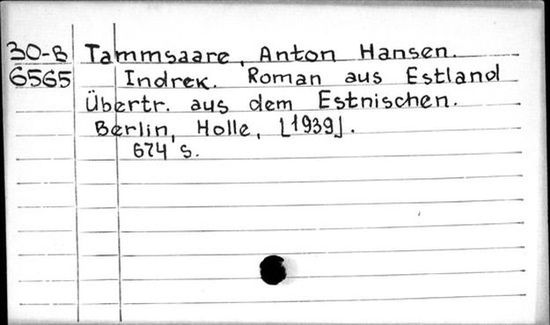 30-B Tammsaare, Anton Hansen.
6565 Indrek. Roman aus Estland
Übertr. aus dem Estnischen.
Berlin, Holle, [1939].
674 S.